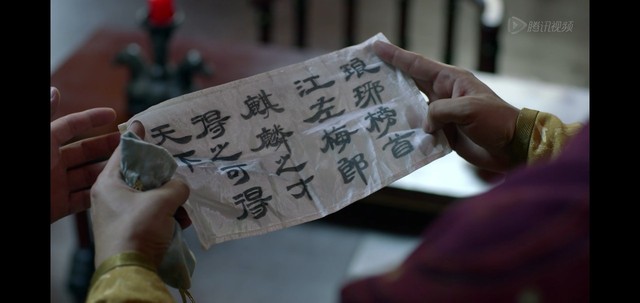 琅琊榜首
江左梅郎
麒麟之才
得之可得
天下
腾讯视频